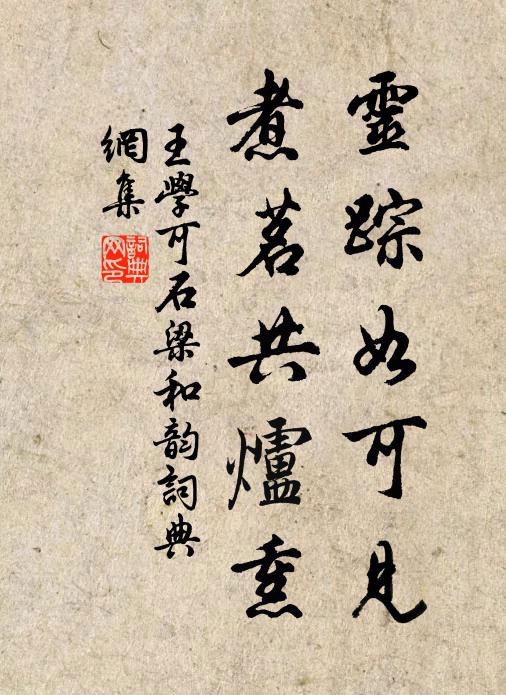 靈踪如可見
煮茗共爐熏
王學可石梁和韵詞典
網集
詞典
网印